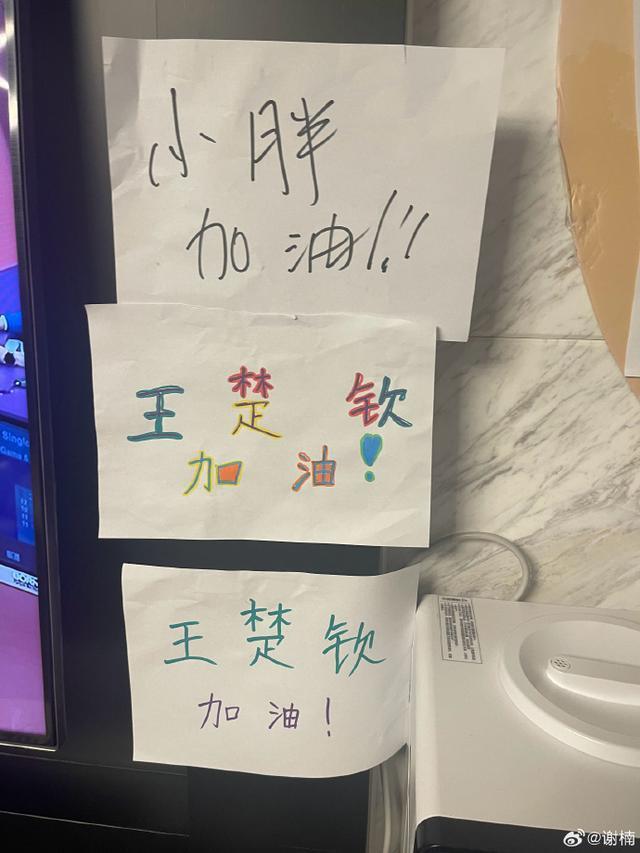 小胖
加油!!!
王楚钦
加油!
王楚钦
加油!
Single
@谢楠